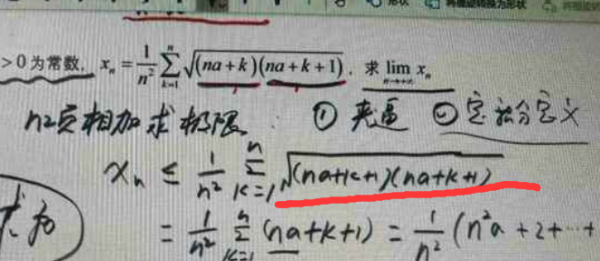 >0为常数, x_n = \frac{1}{n^2} \sum_{k=1}^{n} \sqrt{(na+k)(na+k+1)}, 求 \lim_{n→+∞} x_n
n项相加求极限: ① 夹逼 ② 定积分定义
x_n ≤ \frac{1}{n^2} \sum_{k=1}^{n} \sqrt{(na+k+1)(na+k+1)}
求和
= \frac{1}{n^2} \sum_{k=1}^{n} (na+k+1) = \frac{1}{n^2} (n^2a+2+⋯+